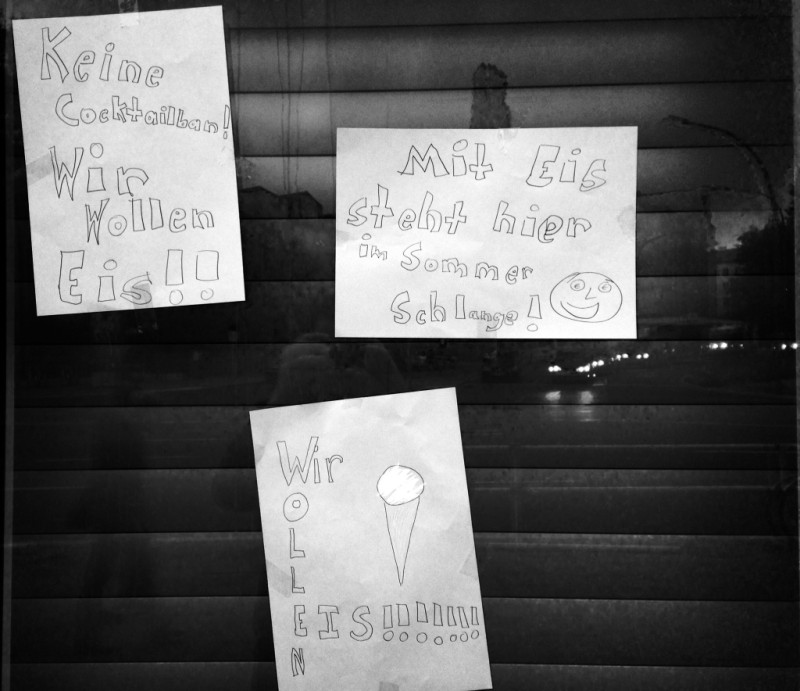 Keine
Cocktailban!
Wir
Wollen
Eis!!
Mit Eis
steht hier
im Sommer
Schlange!
Wir
WOLLEN
EIS!!!!!!!